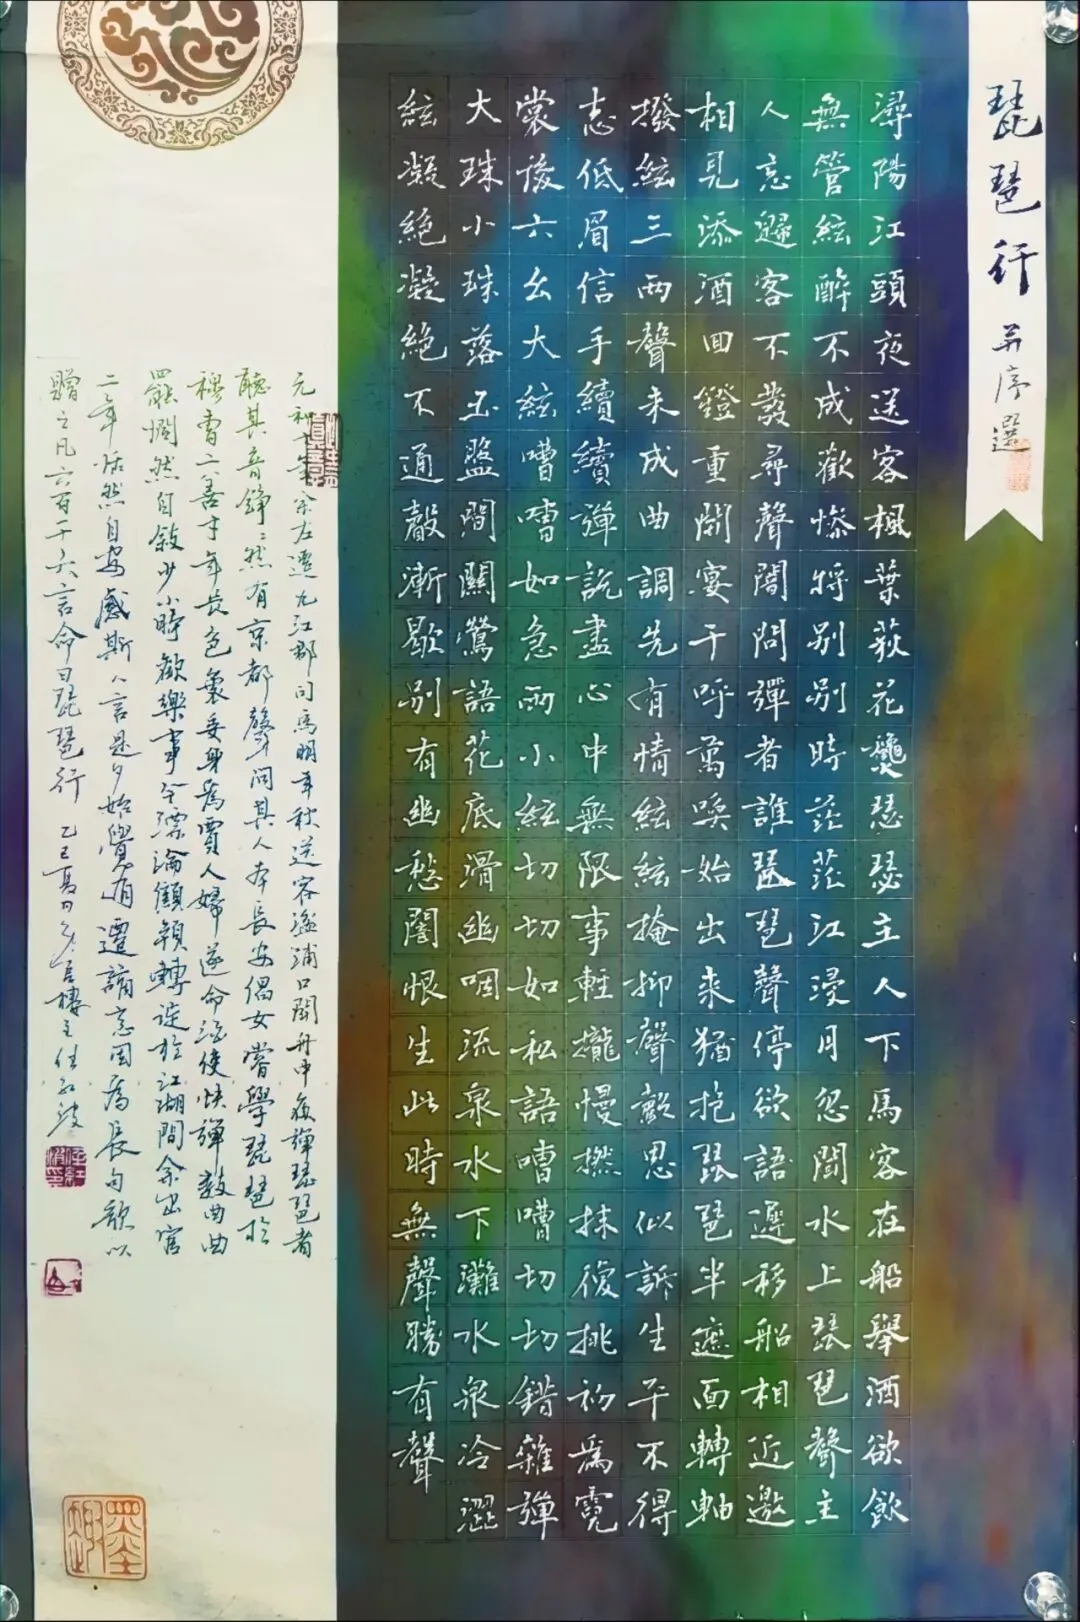 琵琶行 并序選
潯陽江頭夜送客楓葉荻花龝瑟瑟主人下馬客在船舉酒欲飲
無管絃醉不成歡慘將別別時茫茫江浸月忽聞水上琵琶聲主
人忘歸客不發尋聲闇問彈者誰琵琶聲停欲語遲移船相近邀
相見添酒回鐙重開宴千呼萬喚始出來猶抱琵琶半遮面轉軸
撥絃三兩聲未成曲調先有情絃絃掩抑聲聲思似訴生平不得
志低眉信手續續彈說盡心中無限事輕攏慢撚抹復挑初為霓
裳後六幺大絃嘈嘈如急雨小絃切切如私語嘈嘈切切錯雜彈
大珠小珠落玉盤間關鶯語花底滑幽咽流泉水下灘水泉冷澀
絃凝絕凝絕不通聲漸歇別有幽愁闇恨生此時無聲勝有聲
元和十年余左遷九江郡司馬明年秋送客湓浦口聞舟中夜彈琵琶者
聽其音錚錚然有京都聲問其人本長安倡女嘗學琵琶於
穆曹二善才年長色衰委身為賈人婦遂命酒使快彈數曲曲
罷憫然自敘少小時歡樂事今漂淪顦顇轉徙於江湖間余出官
二年恬然自安感斯人言是夕始覺有遷謫意因為長句歌以
贈之凡六百一十六言命曰琵琶行 乙巳夏月 居樓主任紅波
墨趣